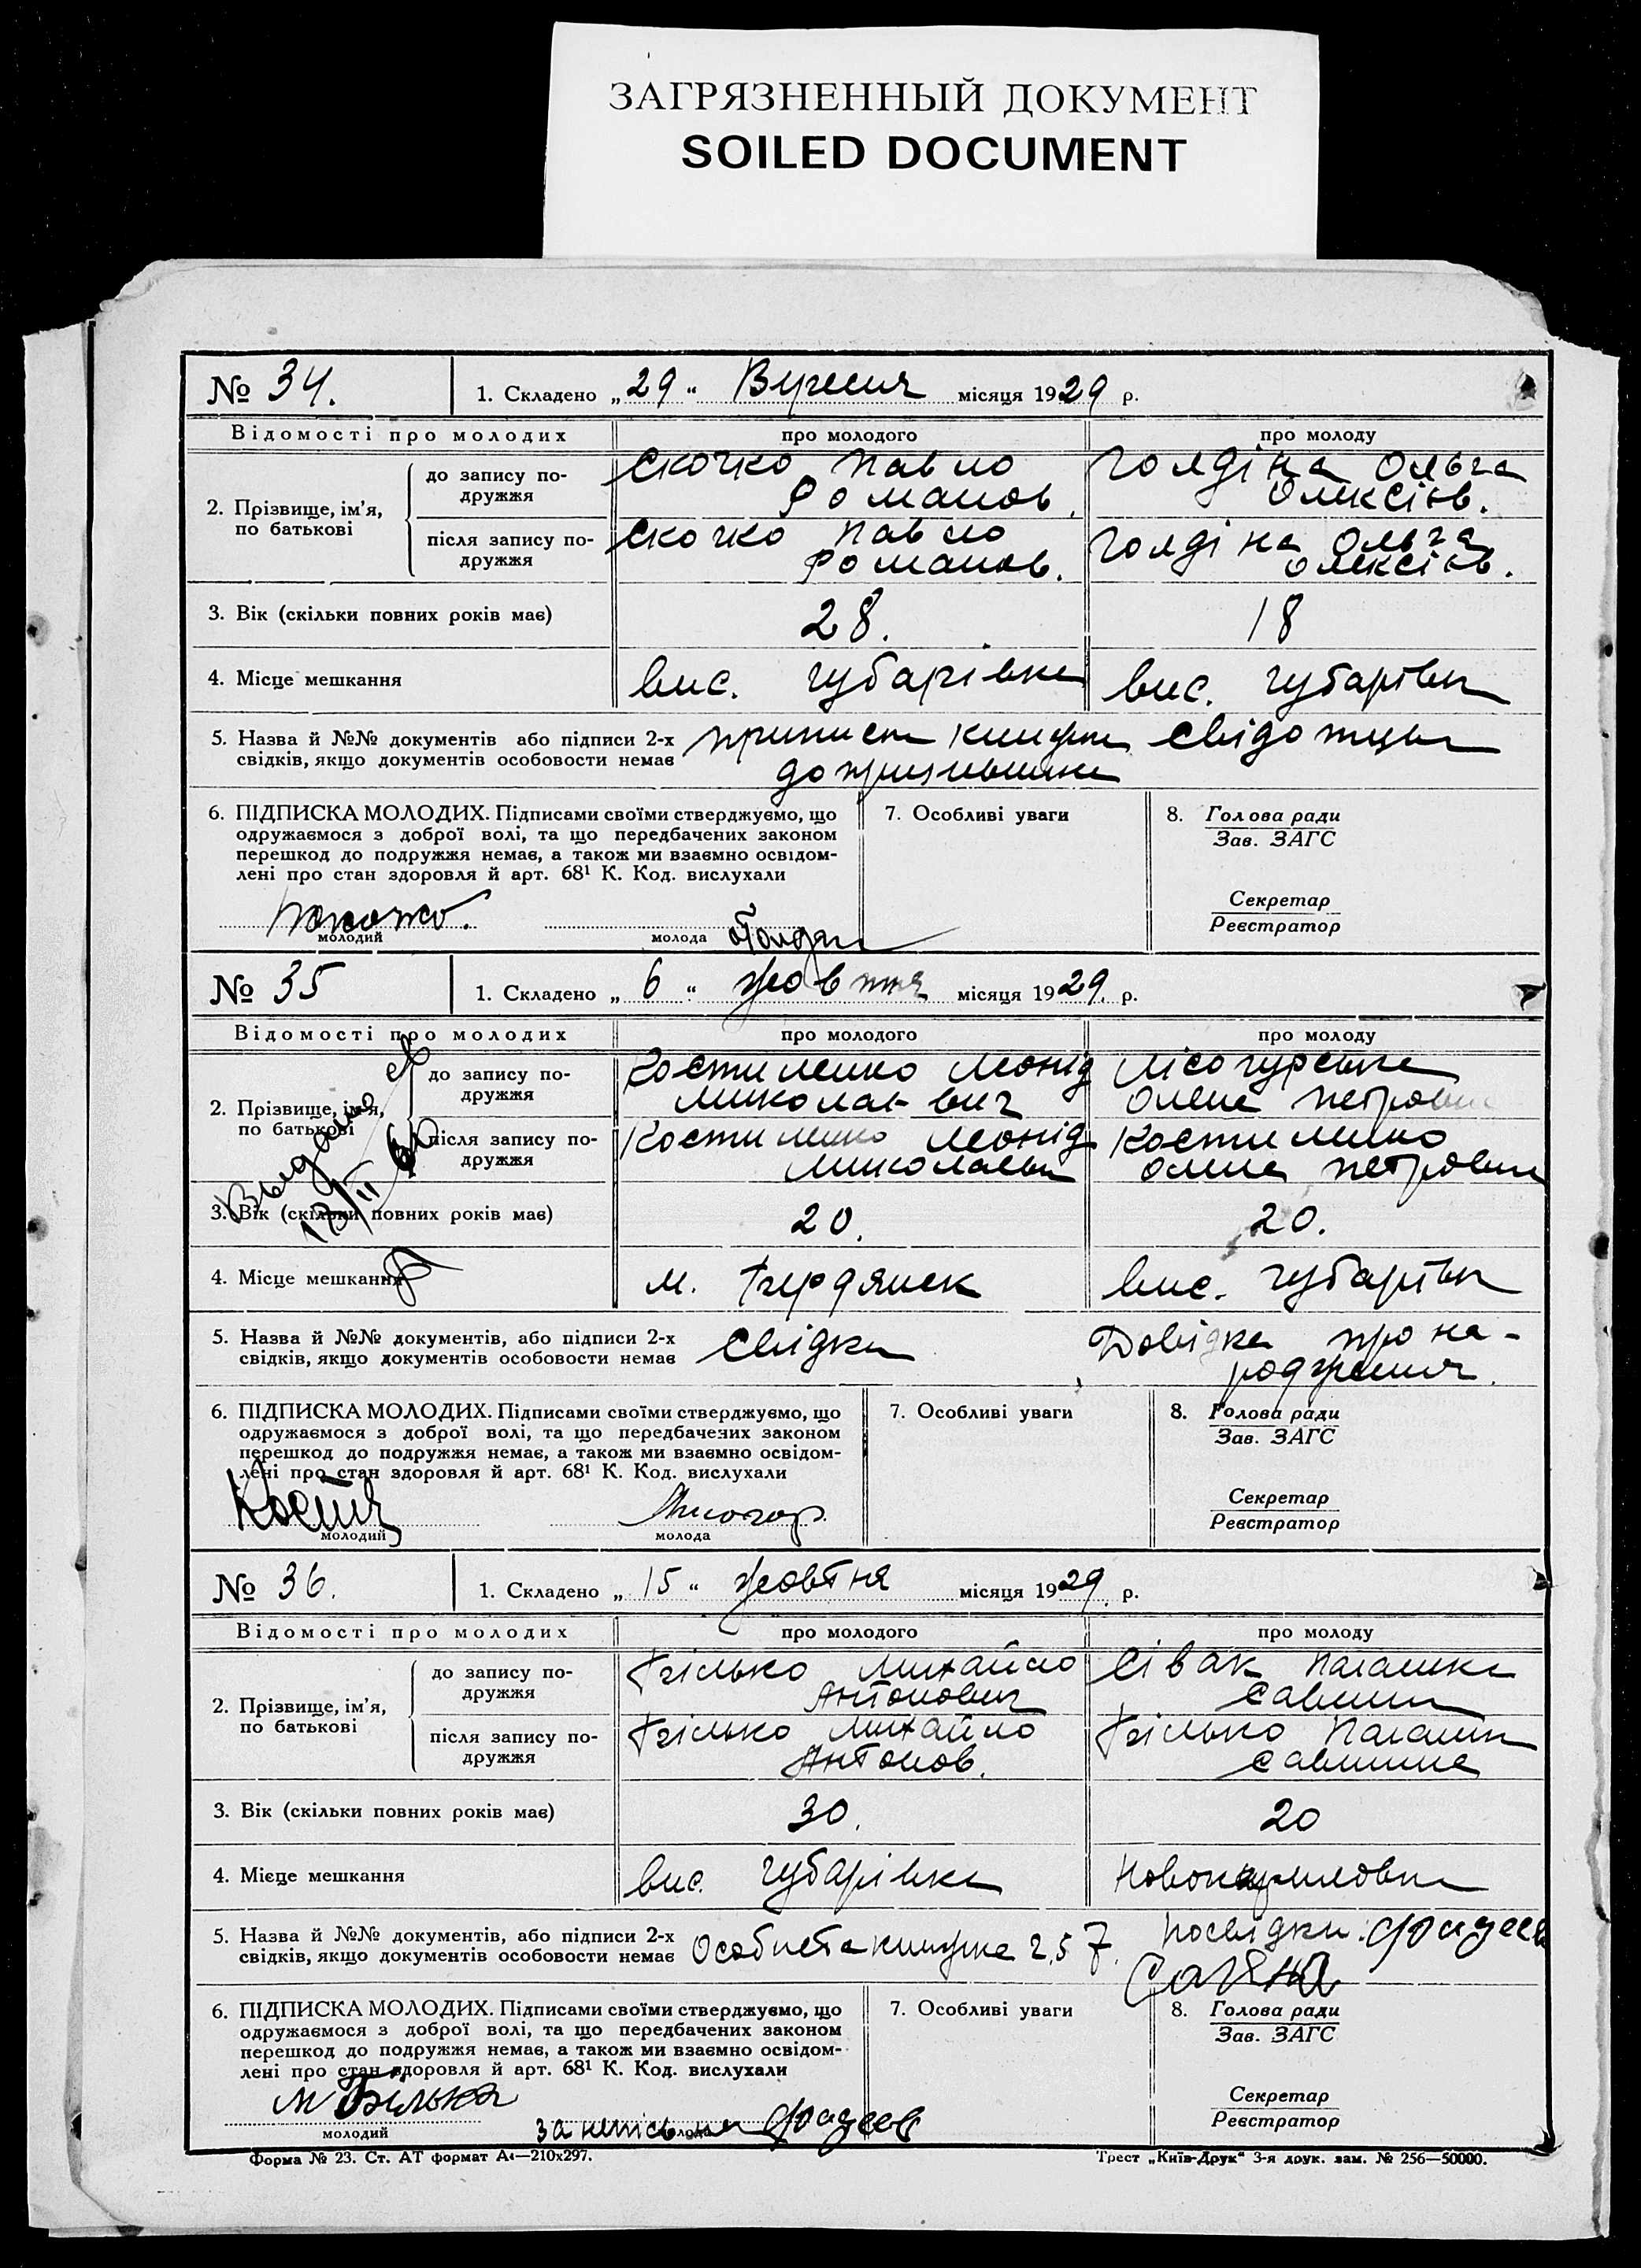 ЗАГРЯЗНЕННЫЙ ДОКУМЕНТ
SOILED DOCUMENT
№ 34. 1. Складено „29“ Вересня місяця 1929 р.
Відомості про молодих про молодого про молоду
2. Прізвище, ім'я, по батькові
до запису по-дружжя
Скочко Павло Голдіна Ольга
Романов. Олексіїв.
після запису по-дружжя
Скочко Павло Голдіна Ольга
Романов. Олексіїв.
3. Вік (скільки повних років має) 28. 18
4. Місце мешкання вис. Губарівка вис. Губарівка
5. Назва й №№ документів або підписи 2-х приписна книжка свідоцтва
свідків, якщо документів особовости немає допризивника
6. ПІДПИСКА МОЛОДИХ. Підписами своїми стверджуємо, що 7. Особливі уваги 8. Голова ради
одружаємося з доброї волі, та що передбачених законом Зав. ЗАГС
перешкод до подружжя немає, а також ми взаємно освідом-
лені про стан здоровля й арт. 68¹ К. Код. вислухали
Секретар
Реєстратор
молодий молода
№ 35 1. Складено „6“ жовтня місяця 1929. р.
Відомості про молодих про молодого про молоду
2. Прізвище, ім'я, по батькові
до запису по-дружжя
Костиленко Леонід Лісогурська
Миколаєвич Олена Петровна
після запису по-дружжя
Костиленко Леонід Костиленко
Миколаєвич Олена Петровна
Выдано
3. Вік (скільки повних років має) 20. 20.
4. Місце мешкання м. Бердянск вис. Губарівка
5. Назва й №№ документів, або підписи 2-х Свідки Довідка про на-
свідків, якщо документів особовости немає родження.
6. ПІДПИСКА МОЛОДИХ. Підписами своїми стверджуємо, що 7. Особливі уваги 8. Голова ради
одружаємося з доброї волі, та що передбачених законом Зав. ЗАГС
перешкод до подружжя немає, а також ми взаємно освідом-
лені про стан здоровля й арт. 68¹ К. Код. вислухали
Секретар
Реєстратор
молодий молода
№ 36. 1. Складено „15“ жовтня місяця 1929. р.
Відомості про молодих про молодого про молоду
2. Прізвище, ім'я, по батькові
до запису по-дружжя
Білько Михайло Сівак Палашка
Антонович
після запису по-дружжя
Білько Михайло Білько
Антонов.
3. Вік (скільки повних років має) 30. 20
4. Місце мешкання вис. Губарівка
5. Назва й №№ документів, або підписи 2-х Особиста книжка Посвідки. Фадеев
свідків, якщо документів особовости немає
6. ПІДПИСКА МОЛОДИХ. Підписами своїми стверджуємо, що 7. Особливі уваги 8. Голова ради
одружаємося з доброї волі, та що передбачених законом Зав. ЗАГС
перешкод до подружжя немає, а також ми взаємно освідом-
лені про стан здоровля й арт. 68¹ К. Код. вислухали
Секретар
Реєстратор
М Білька Фадеев
молодий молода
Форма № 23. Ст. АТ формат А4—210х297. Трест „Київ-Друк“ 3-я друк. зам. № 256—50000.